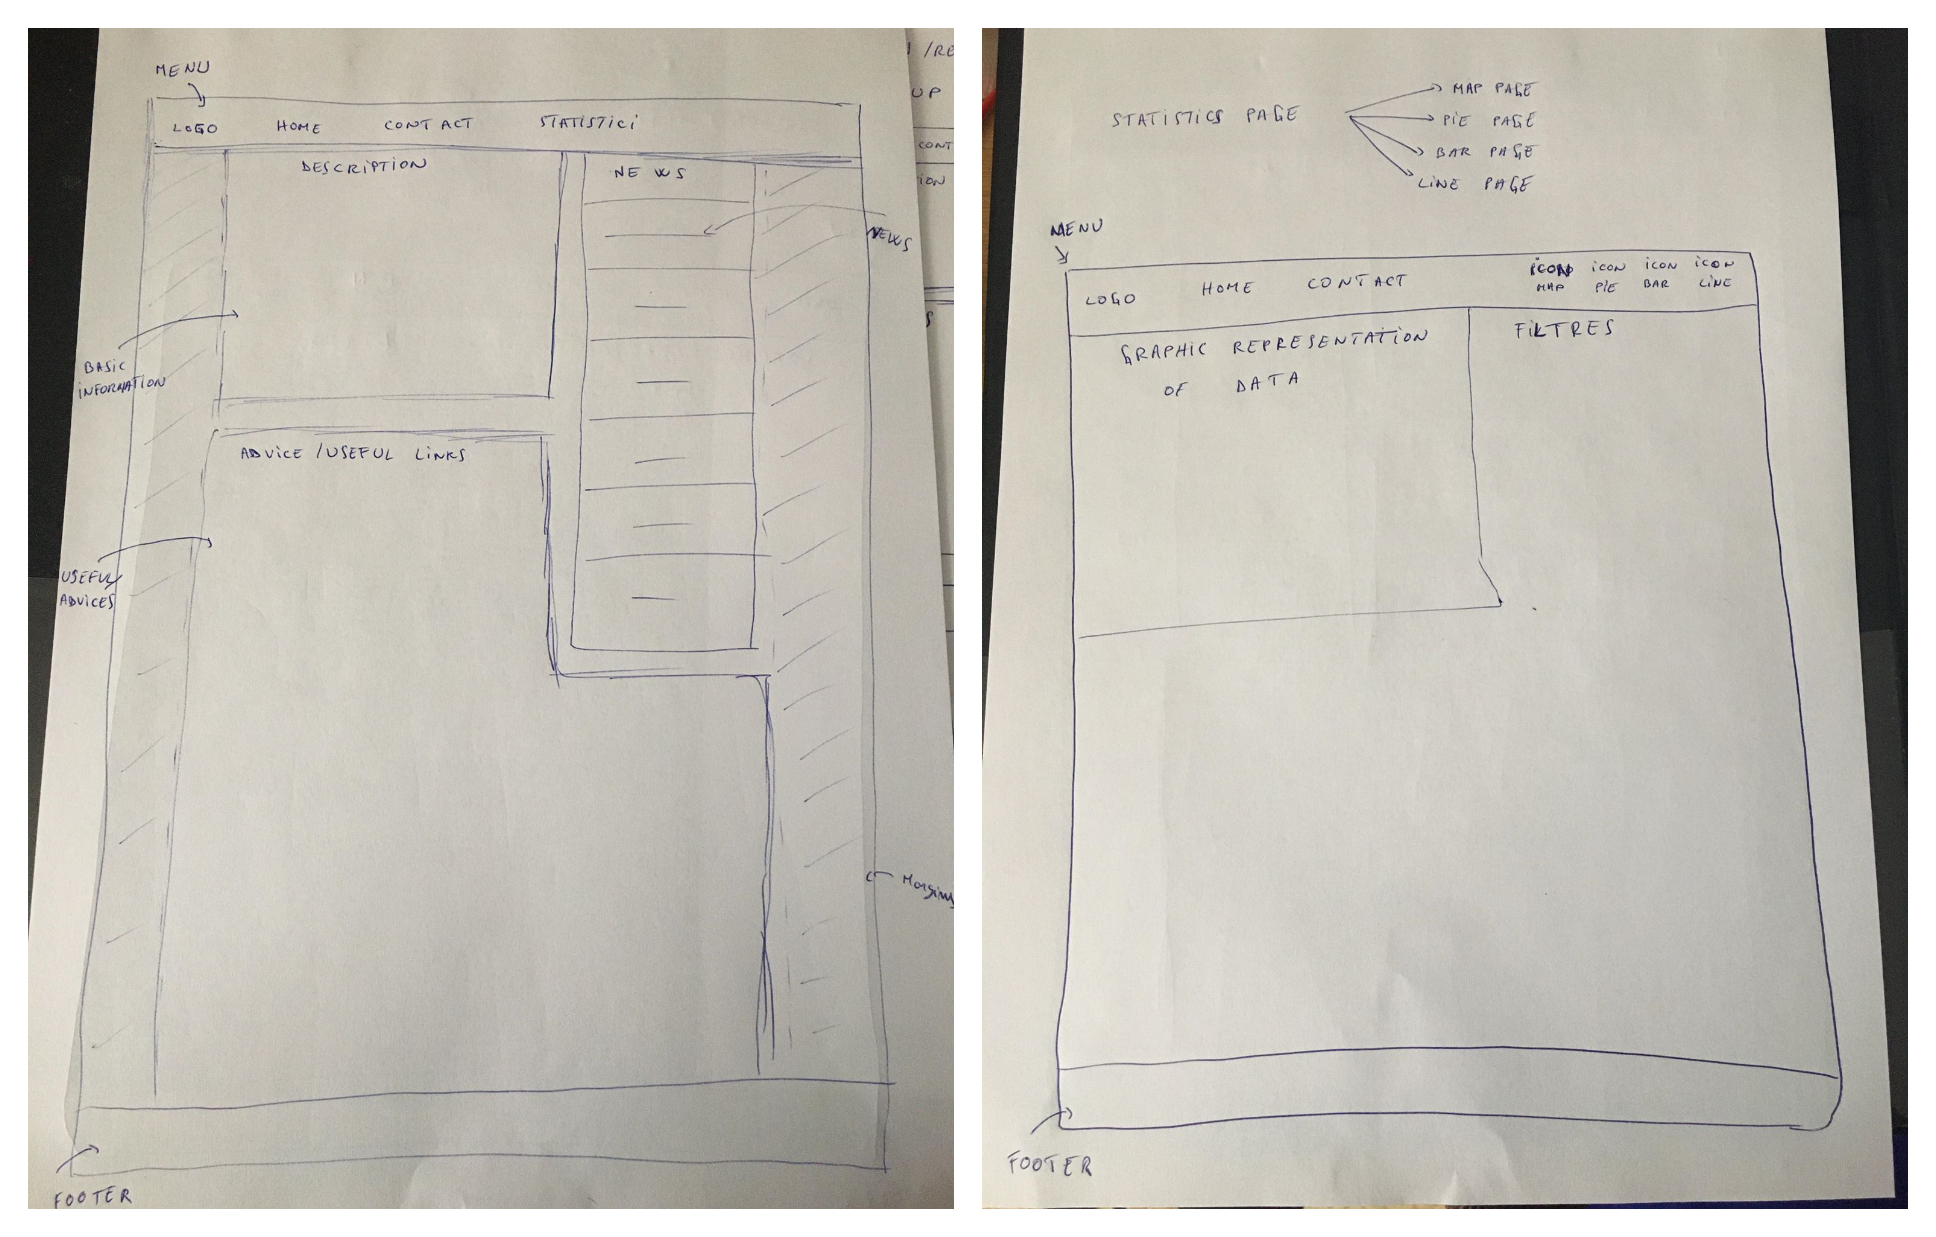 MENU
LOGO HOME CONTACT STATISTICI
DESCRIPTION
NEWS
NEWS
BASIC
INFORMATION
ADVICE /USEFUL LINKS
USEFUL
ADVICES
Margins
FOOTER
/RE
UP
CONT
ION
S
STATISTICS PAGE
MAP PAGE
PIE PAGE
BAR PAGE
LINE PAGE
MENU
LOGO HOME CONTACT
ICON MAP
ICON PIE
ICON BAR
ICON LINE
GRAPHIC REPRESENTATION
OF DATA
FILTRES
FOOTER